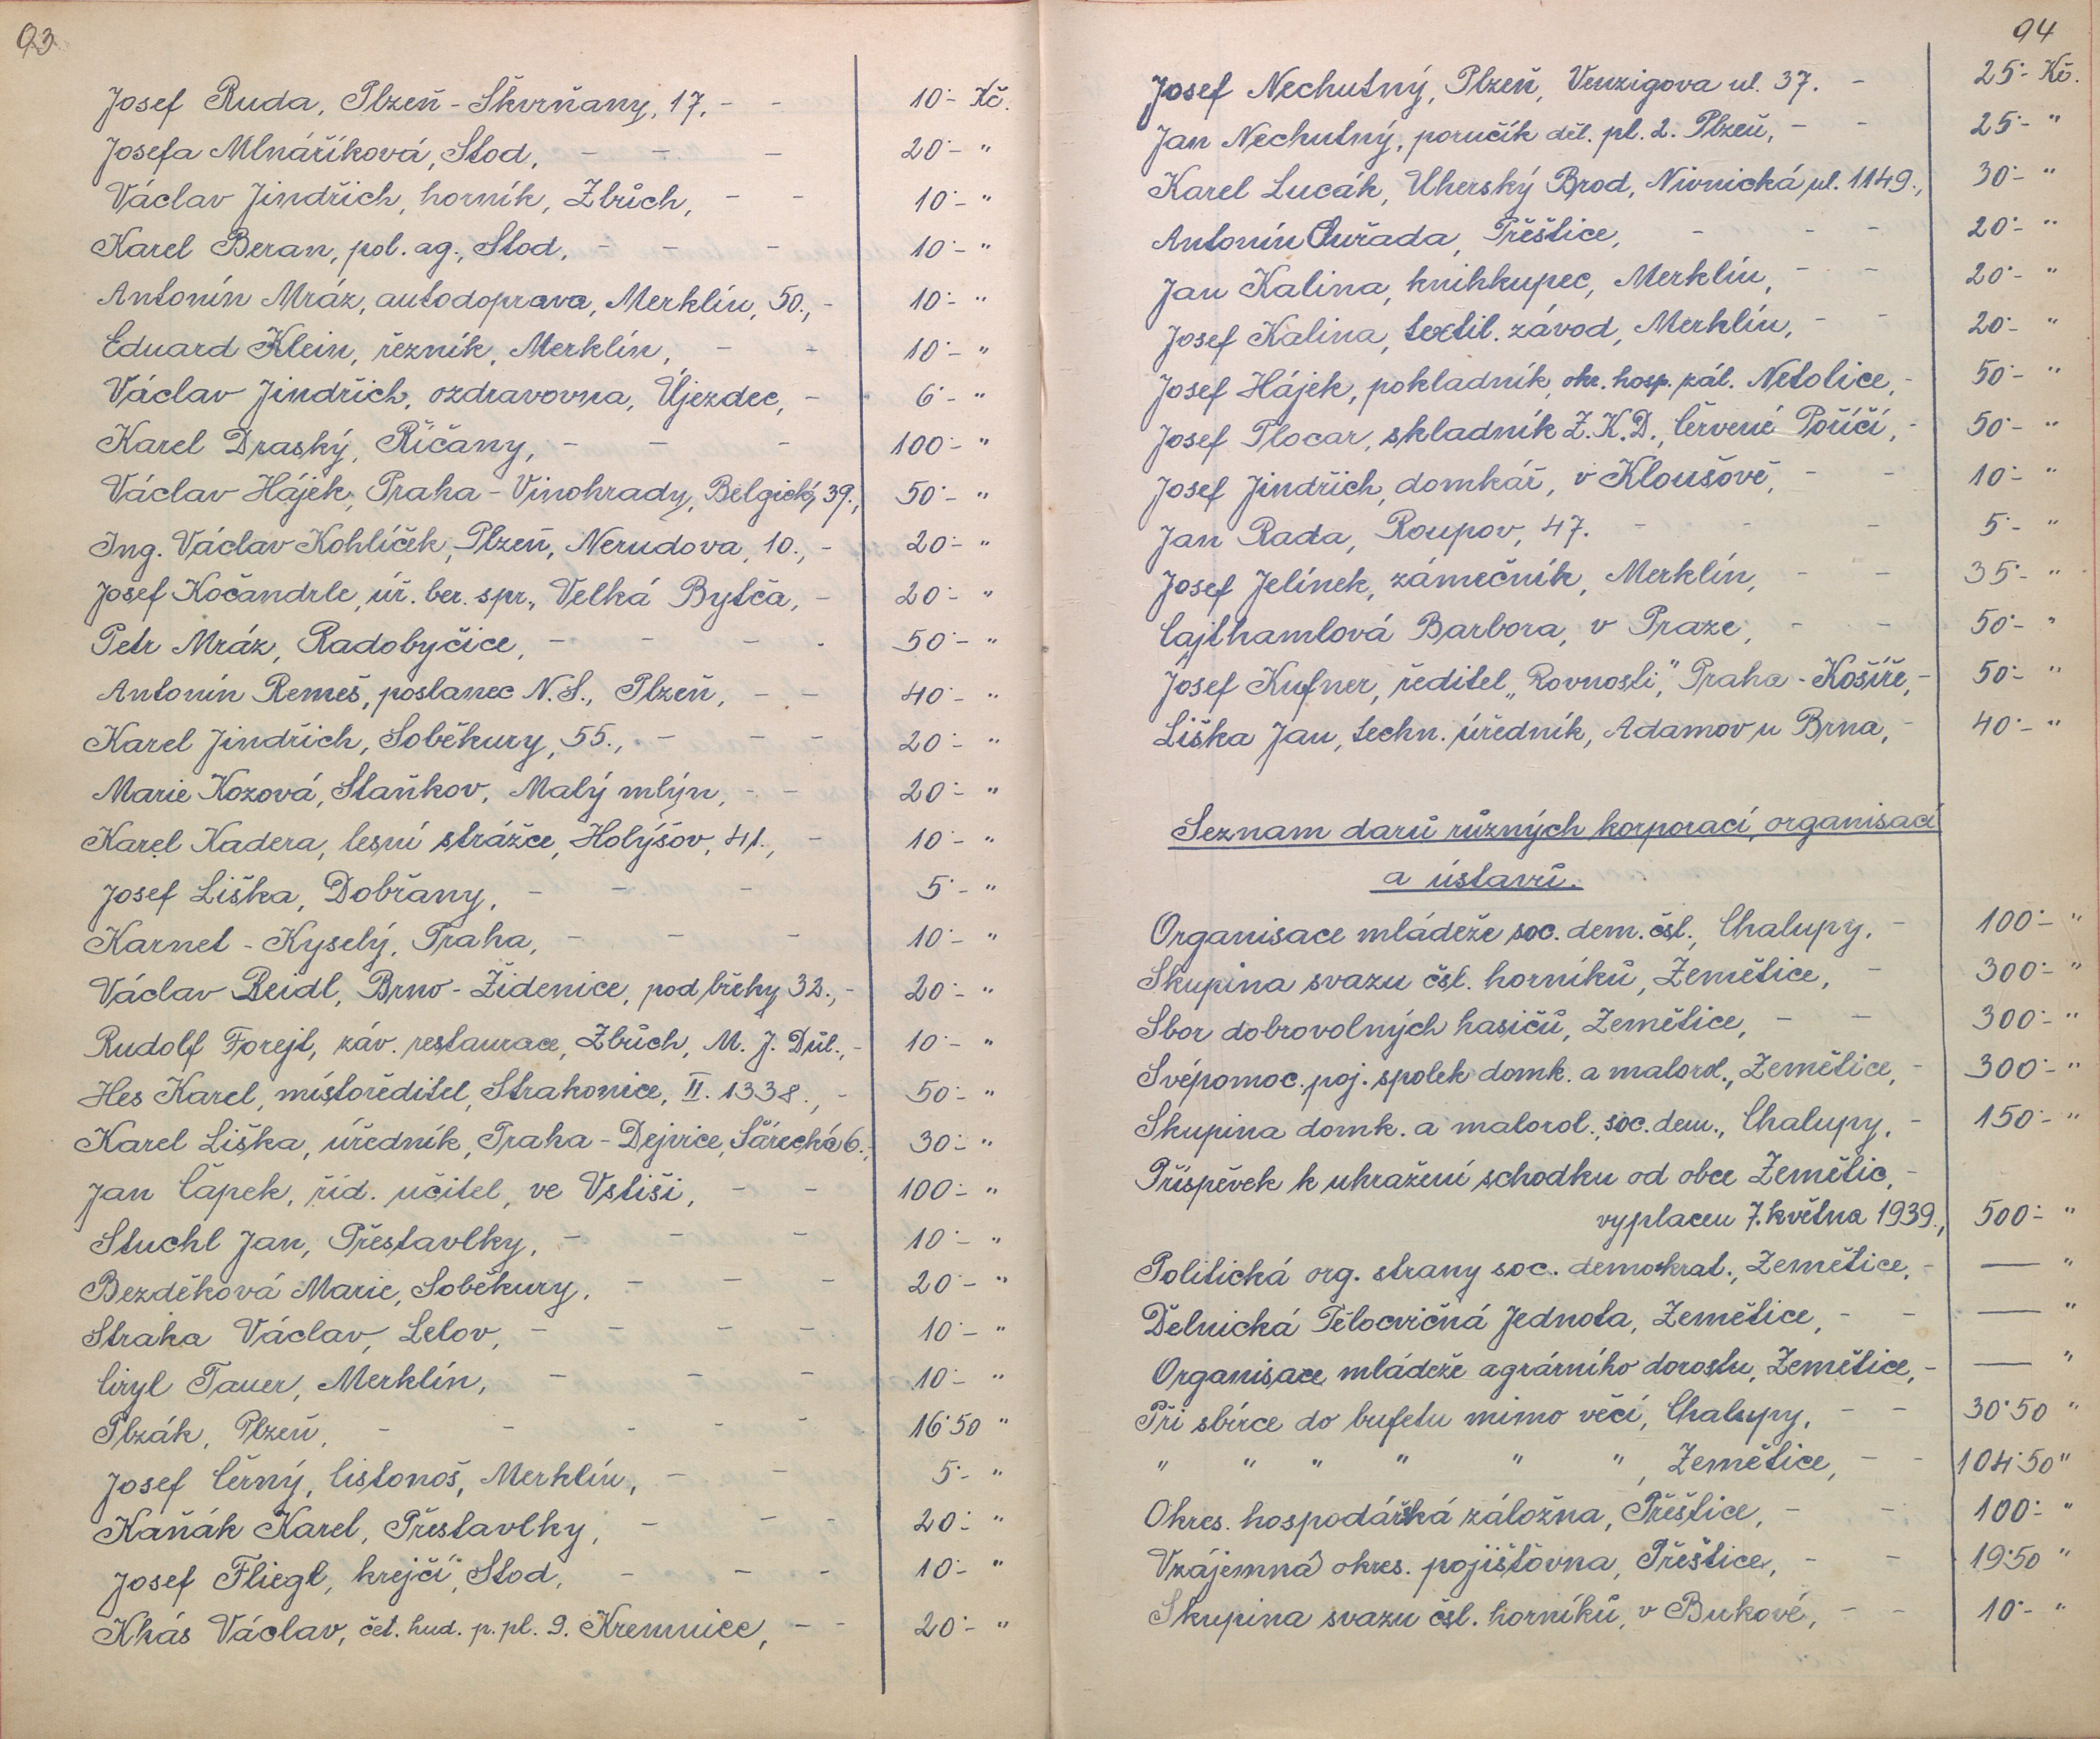 93.
Josef Ruda, Plzeň - Škvrňany, 17. - - 10·- Kč.
Josefa Mlnáříková, Stod, - - - 20·- "
Václav Jindřich, horník, Zbůch, - - 10·- "
Karel Beran, pol. ag., Stod, - - - 10·- "
Antonín Mráz, autodoprava, Merklín, 50., - 10·- "
Eduard Klein, řezník, Merklín, - - 10·- "
Václav Jindřich, ozdravovna, Újezdec, - 6·- "
Karel Draský, Říčany, - - - 100·- "
Václav Hájek, Praha - Vinohrady, Belgická 39., 50·- "
Ing. Václav Kohlíček, Plzeň, Nerudova, 10., - 20·- "
Josef Kočandrle, úř. ber. spr., Velká Bytča, - 20·- "
Petr Mráz, Radobyčice, - - - - 50·- "
Antonín Remeš, poslanec N. S., Plzeň, - - 40·- "
Karel Jindřich, Soběkury, 55., - - - 20·- "
Marie Kozová, Staňkov, Malý mlýn, - - 20·- "
Karel Kadera, lesní strážce, Holýšov, 41., - 10·- "
Josef Liška, Dobřany, - - - 5·- "
Karnet - Kyselý, Praha, - - - 10·- "
Václav Beidl, Brno - Židenice, pod břehy 32., - 20·- "
Rudolf Forejt, záv. restaurace, Zbůch, M. J. Důl., - 10·- "
Hes Karel, místoředitel, Strakonice, II. 1338., - 50·- "
Karel Liška, úředník, Praha - Dejvice, Šárecká 6., 30·- "
Jan Čapek, říd. učitel, ve Vstiši, - - 100·- "
Stuchl Jan, Přestavlky, - - - 10·- "
Bezděková Marie, Soběkury, - - - 20·- "
Straka Václav, Letov, - - - - 10·- "
Ciryl Tauer, Merklín, - - - 10·- "
Plzák, Plzeň, - - - - - 16·50 "
Josef Černý, listonoš, Merklín, - - 5·- "
Kaňák Karel, Přestavlky, - - - 20·- "
Josef Fliegl, krejčí, Stod, - - - 10·- "
Khás Václav, čet. hud. p. pl. 9. Kremnice, - - 20·- "
94
Josef Nechutný, Plzeň, Venzigova ul. 37. - 25·- Kč.
Jan Nechutný, poručík děl. pl. 2. Plzeň, - - 25·- "
Karel Lucák, Uherský Brod, Nivnická ul. 1149., 30·- "
Antonín Ouřada, Přeštice, - - - 20·- "
Jan Kalina, knihkupec, Merklín, - - 20·- "
Josef Kalina, textil. závod, Merklín, - - 20·- "
Josef Hájek, pokladník, okr. hosp. zál. Netolice, - 50·- "
Josef Plocar, skladník Z. K. D., Červené Poříčí, - 50·- "
Josef Jindřich, domkář, v Kloušově, - - 10·- "
Jan Rada, Roupov, 47. - - - 5·- "
Josef Jelínek, zámečník, Merklín, - - 35·- "
Cajthamlová Barbora, v Praze, - - 50·- "
Josef Kufner, ředitel „Rovnosti", Praha - Košíře, - 50·- "
Liška Jan, techn. úředník, Adamov u Brna, - 40·- "
Seznam darů různých korporací, organisací
a ústavů.
Organisace mládeže soc. dem. čsl., Chalupy, - 100·- "
Skupina svazu čsl. horníků, Zemětice, - 300·- "
Sbor dobrovolných hasičů, Zemětice, - - 300·- "
Svépomoc. poj. spolek domk. a malorol., Zemětice, - 300·- "
Skupina domk. a malorol., soc. dem., Chalupy, - 150·- "
Příspěvek k uhražení schodku od obce Zemětic, -
vyplacen 7. května 1939., 500·- "
Politická org. strany soc. demokrat., Zemětice, - — "
Dělnická Tělocvičná Jednota, Zemětice, - - — "
Organisace mládeže agrárního dorostu, Zemětice, - — "
Při sbírce do bufetu mimo věcí, Chalupy, - - 30·50 "
" " " " " ", Zemětice, - - 104·50 "
Okres. hospodářská záložna, Přeštice, - - 100·- "
Vzájemná okres. pojišťovna, Přeštice, - - 19·50 "
Skupina svazu čsl. horníků, v Bukové, - - 10·- "